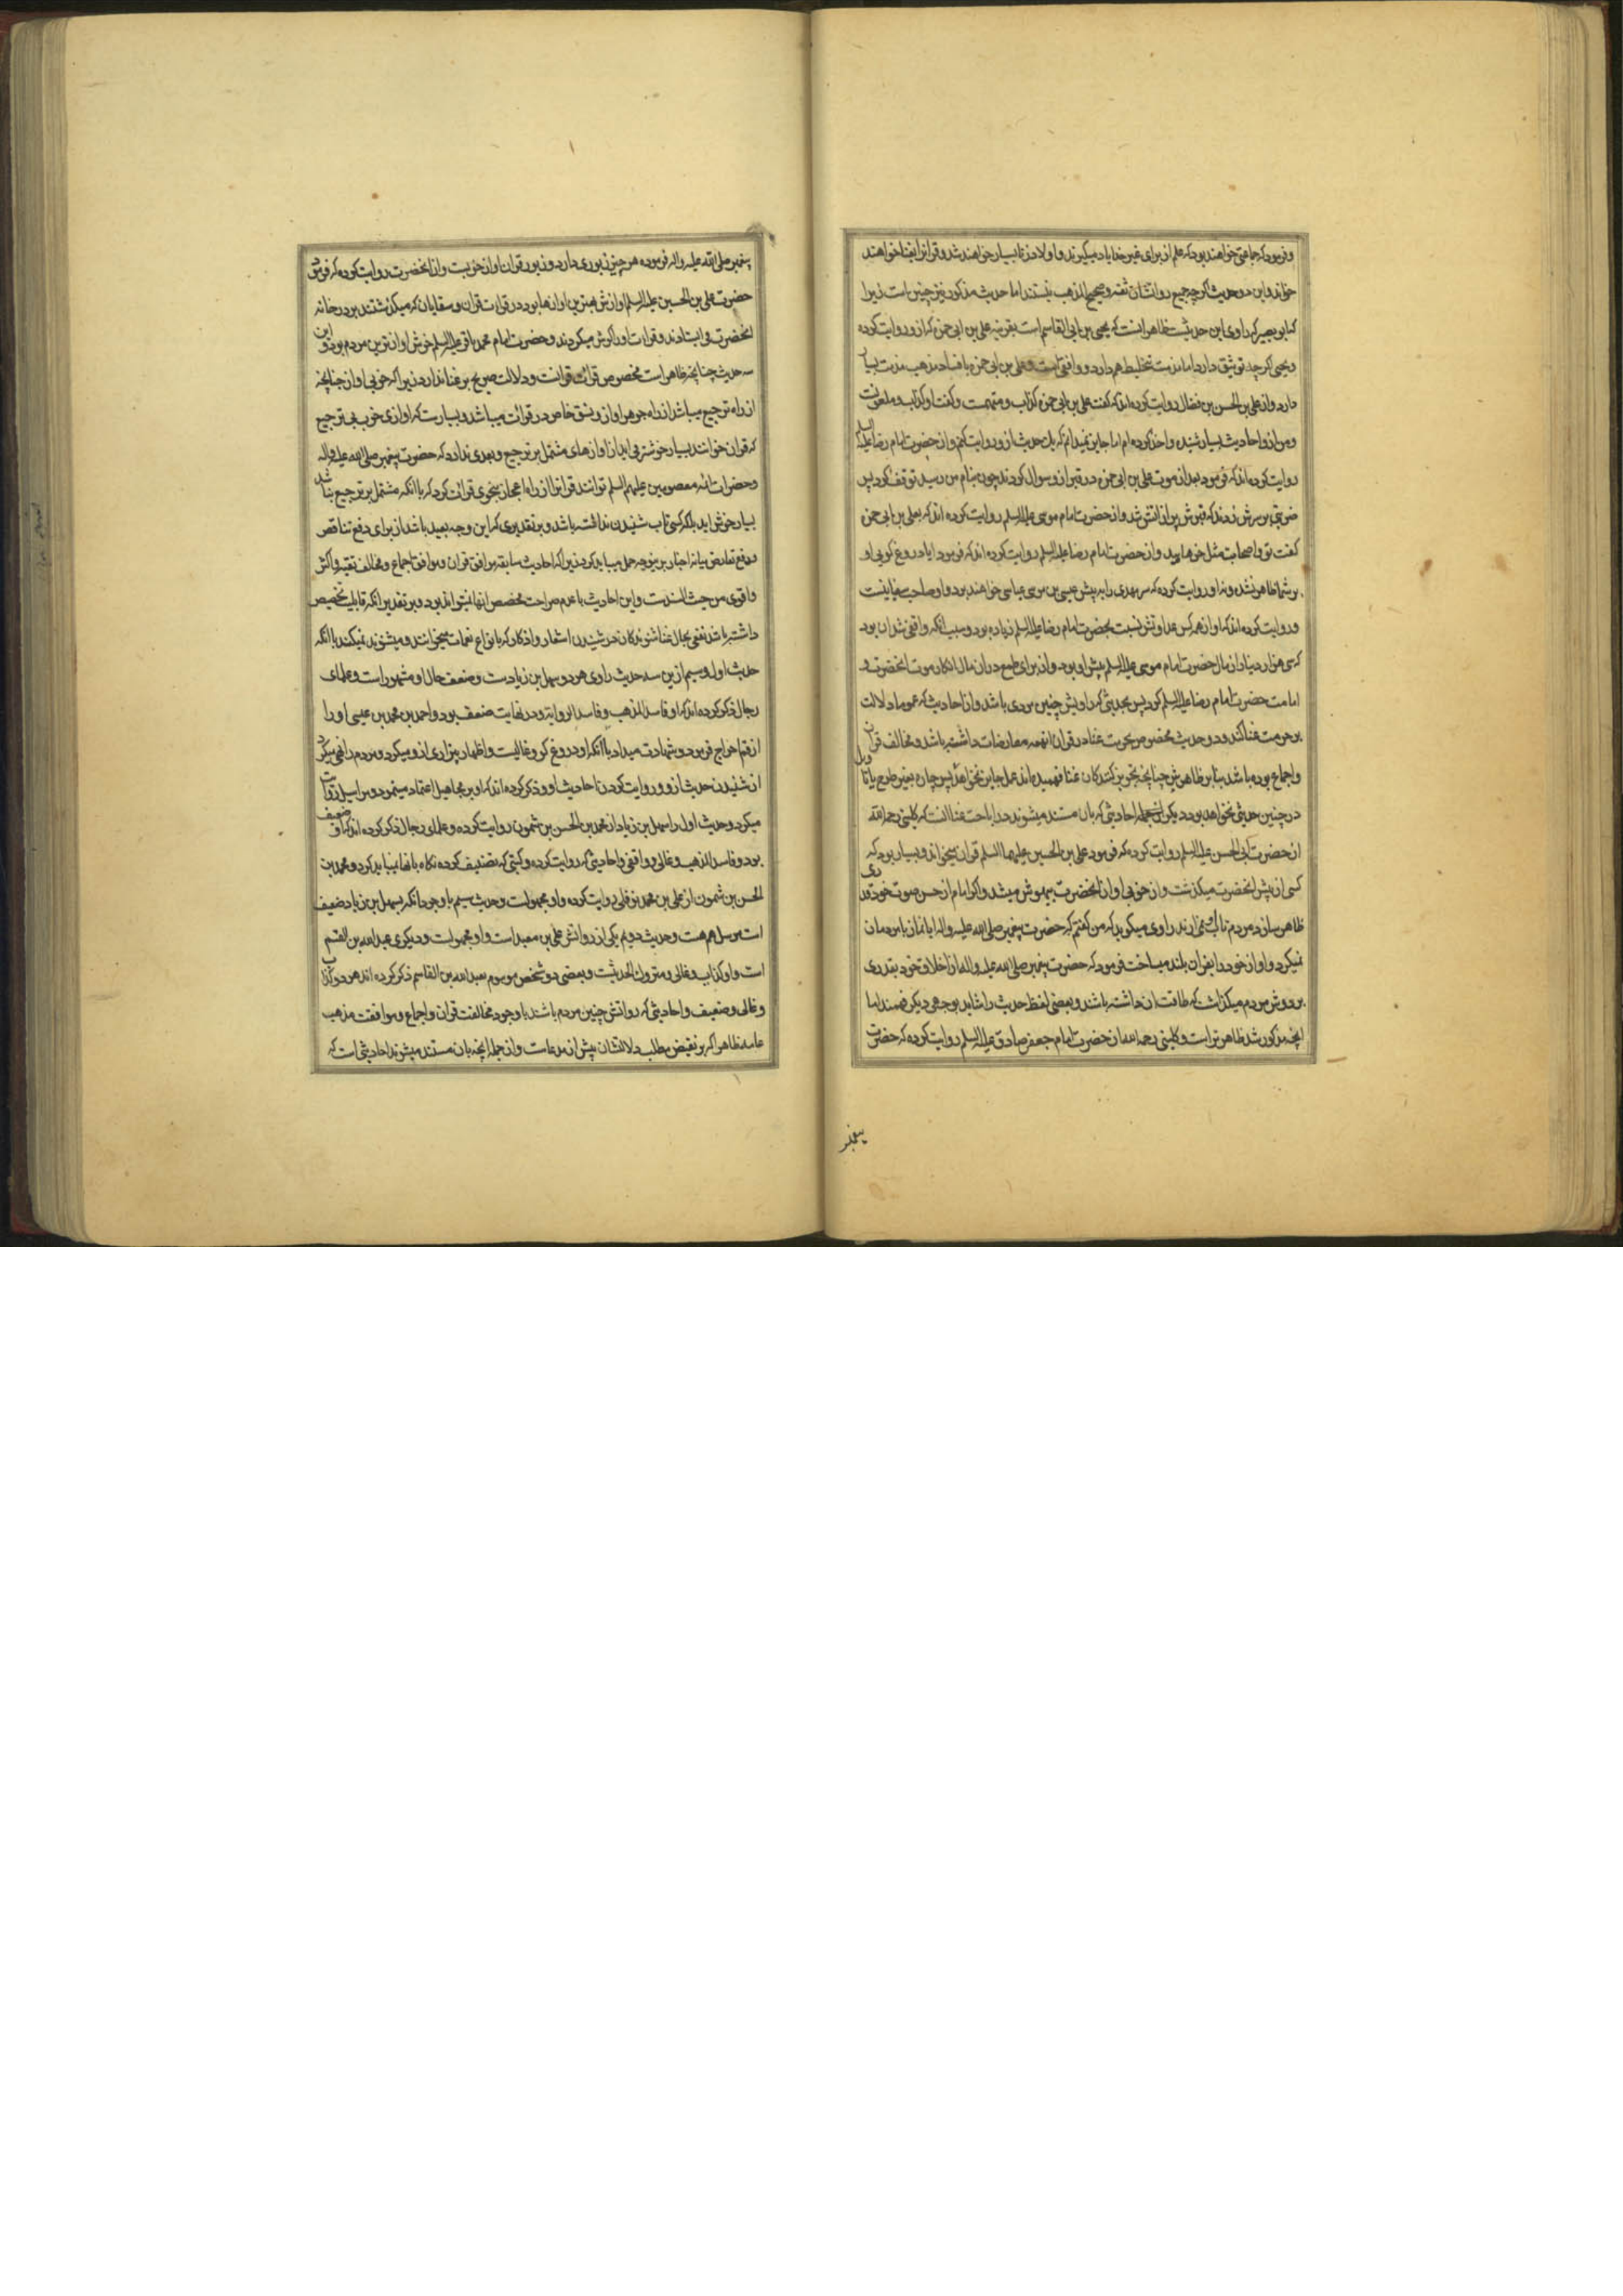 و فرمود که جماعتی خواهند بود که علم از برای غیر خدا یاد میگیرند و اولاد زنا بسیار خواهند شد و قرانرا بغنا خواهند
خواند و این دو حدیث اگرچه جمیع رواتشان ثقه و صحیح المذهب نیستند اما حدیث مذکور نیز چنین است زیرا
که ابو بصیر که راوی این حدیثست ظاهر اینست که یحیی بن ابی القاسم است بقرینه علی بن ابی حمزه که ازو روایت کرده
و یحیی اگرچه توثیق دارد اما مذمت تخلیط هم دارد و واقفی است و علی بن ابی حمزه با فساد مذهب مذمت بسیار
دارد و از علی بن الحسن بن فضال روایت کرده اند که گفت علی بن ابی حمزه کذاب و متهمست و گفت او کذاب و ملعونست
و من ازو احادیث بسیار شنیده و اخذ کرده ام اما جایز نمیدانم که یک حدیث ازو روایت کنم و از حضرت امام رضا علیه السلم
روایت کرده اند که فرمود بعد از موت علی بن ابی حمزه در قبر ازو سوال کردند چون بنام من رسید توقف کرد پس
ضربتی بر سرش زدند که قبرش پر از اتش شد و از حضرت امام موسی علیه السلم روایت کرده اند که بعلی بن ابی حمزه
گفت تو و اصحابت مثل خرهایید و از حضرت امام رضا علیه السلم روایت کرده اند که فرمود ایا دروغ گویی او
بر شما ظاهر نشده و نه او روایت کرده که سر مهدی را به پیش عیسی بن موسی عباسی خواهند برد و او صاحب سفیانیست
و روایت کرده اند که او از همه کس عداوتش نسبت بحضرت امام رضا علیه السلم زیاده بود و سبب انکه واقفی شد ان بود
که سی هزار دینار از مال حضرت امام موسی علیه السلم پیش او بود و از برای طمع در ان مال انکار موت انحضرت و
امامت حضرت امام رضا علیه السلم کرد پس بحدیثی که راویش چنین مردی باشد و از احادیث که عموما دلالت
بر حرمت غنا کند و دو حدیث مخصوص بحرمت غنا در قران اینهمه معارضات داشته باشد و مخالف قران
و اجماع بوده باشد بنا بر ظاهرش چنانچه تجویز کنندگان غنا فهمیده اند عمل جایز نخواهد پس چاره بغیر طرح یا تاویل
در چنین حدیثی نخواهد بود دیگر از جمله احادیثی که بان مستند میشوند در اباحت غنا انست که کلینی رحمه الله
از حضرت ابی الحسن علیه السلم روایت کرده که فرمود علی بن الحسین علیهما السلم قران میخواند و بسیار بود که
کسی از پیش انحضرت میگذشت و از خوبی اواز انحضرت بیهوش میشد و اگر امام از حسن صوت خود قدری
ظاهر سازد مردم تاب نمی ارند راوی میگوید که من گفتم که حضرت پیغمبر صلی الله علیه و اله ایا نماز با مردمان
نمیکرد و اواز خود را بقران بلند میساخت فرمود که حضرت پیغمبر صلی الله علیه و اله از اخلاق خود بقدری
بر دوش مردم میگذاشت که طاقت ان داشته باشند و بعضی لفظ حدیث را شاید بوجهی دیگر فهمند اما
انچه مذکور شد ظاهرتر است و کلینی رحمه الله از حضرت امام جعفر صادق علیه السلم روایت کرده که حضرت
پیغمبر
پیغمبر صلی الله علیه و اله فرموده هر چیز زیوری دارد و زیور قران اواز خوبست و از انحضرت روایت کرده که فرمود
حضرت علی بن الحسین علیه السلم اوازش بهترین اوازها بود در قرات قران و سقایان که میگذشتند بر در خانه
انحضرت می ایستادند و قرات او را گوش میکردند و حضرت امام محمد باقر علیه السلم خوش اوازترین مردم بود و این
سه حدیث چنانچه ظاهر است مخصوص قرائت قرانست و دلالت صریح بر غنا ندارد زیرا که خوبی اواز چنانچه
از راه ترجیع میباشد از راه جوهر اواز و نسق خاص در قرائت میباشد و بسیارست که اوازی خوب بی ترجیع
که قران خوانند بسیار خوشتر می اید از اوازهای مشتمل بر ترجیع و بعدی ندارد که حضرت پیغمبر صلی الله علیه و اله
و حضرات ائمه معصومین علیهم السلم توانند قرانرا از راه اعجاز بنحوی قرائت کرد که با انکه مشتمل بر ترجیع نباشد
بسیار خوش اید بلکه کسی تاب شنیدن نداشته باشد و بر تقدیری که این وجه بعید باشد از برای دفع تناقض
و رفع تعارض میانه اخبار برین وجه حمل میباید کرد زیرا که احادیث سابقه موافق قران و موافق اجماع و مخالف تقیه و اکثر
و اقوی من حیث السندست و این احادیث با عدم صراحت مخصص انها نمیتواند بود و بر تقدیر انکه قابلیت تخصیص
داشته باشد نفعی بحال غنا شنوندگان در شنیدن اشعار و اذکار که بانواع نغمات میخوانند و میشنوند نمیکند با انکه
حدیث اول و سیم ازین سه حدیث راوی هر دو سهل بن زیادست و ضعف حال او مشهور است و علمای
رجال ذکر کرده اند که او فاسد المذهب و فاسد الروایة و در نهایت ضعف بود و احمد بن محمد بن عیسی او را
از قم اخراج فرمود و شهادت میداد با انکه او دروغ گو و غالیست و اظهار بیزاری ازو میکرد و مردم را نهی میکرد
از شنیدن حدیث ازو و روایت کردن احادیث او و ذکر کرده اند که او بر مجاهیل اعتماد مینمود و مراسیل روایت
میکرد و حدیث اول را سهل بن زیاد از محمد بن الحسن بن شمون روایت کرده و علمای رجال ذکر کرده اند که او ضعیف
بود و فاسد المذهب و غالی و واقفی و احادیثی که روایت کرده و کتبی که تصنیف کرده نگاه بانها نمیباید کرد و محمد بن
الحسن بن شمون از علی بن محمد نوفلی روایت کرده و او مجهولست و حدیث سیم با وجود انکه بسهل بن زیاد ضعیف
است مرسل هم هست و حدیث دویم یکی از رواتش علی بن معبد است و او مجهولست و دیگری عبد الله بن القسم
است و او کذاب و غالی و متروک الحدیثست و بعضی دو شخص موسوم بعبد الله بن القاسم ذکر کرده اند هر دو کذاب
و غالی و ضعیف و احادیثی که رواتش چنین مردم باشند با وجود مخالفت قران و اجماع و موافقت مذهب
عامه ظاهرا که بر نقیض مطلب دلالتشان بیش از مدعاست و از جمله انچه بان مستند میشوند احادیثی است که